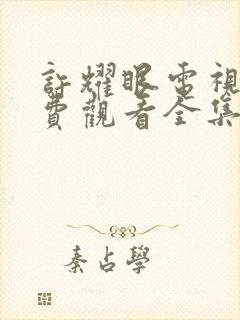 許耀眼電視
費觀看全集
秦占學